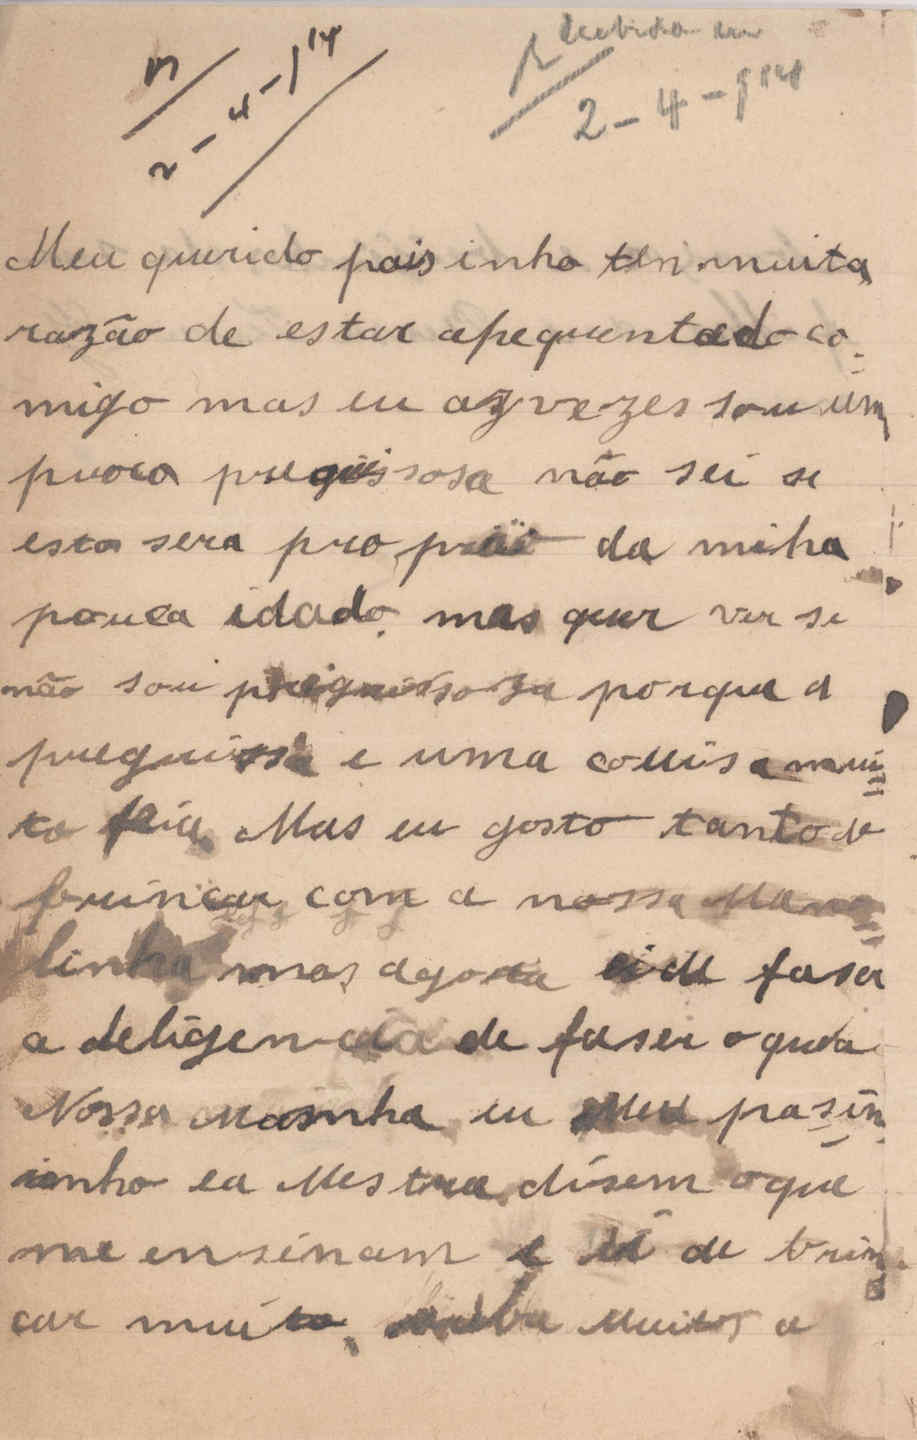 R
2-4-914
Recebida em
2-4-914
Meu querido paisinho ten muita
razão de estar apequentado co-
migo mas eu az vezes sou um
puoco preguissosa não sei se
esta sera pro da minha
pouca idado. mas quer ver se
não sou preguissosa porque a
preguissa e uma couisa mui=
to feia. Mas eu gosto tanto de
brincar com a nossa Mano=
linha mas agora ei de faser
a deligencia de faser o que a
Nossa Mainha eu Meu pasin-
inho ea Mestra disem o que
me ensinam e ei de brin-
car muito. Muitos a